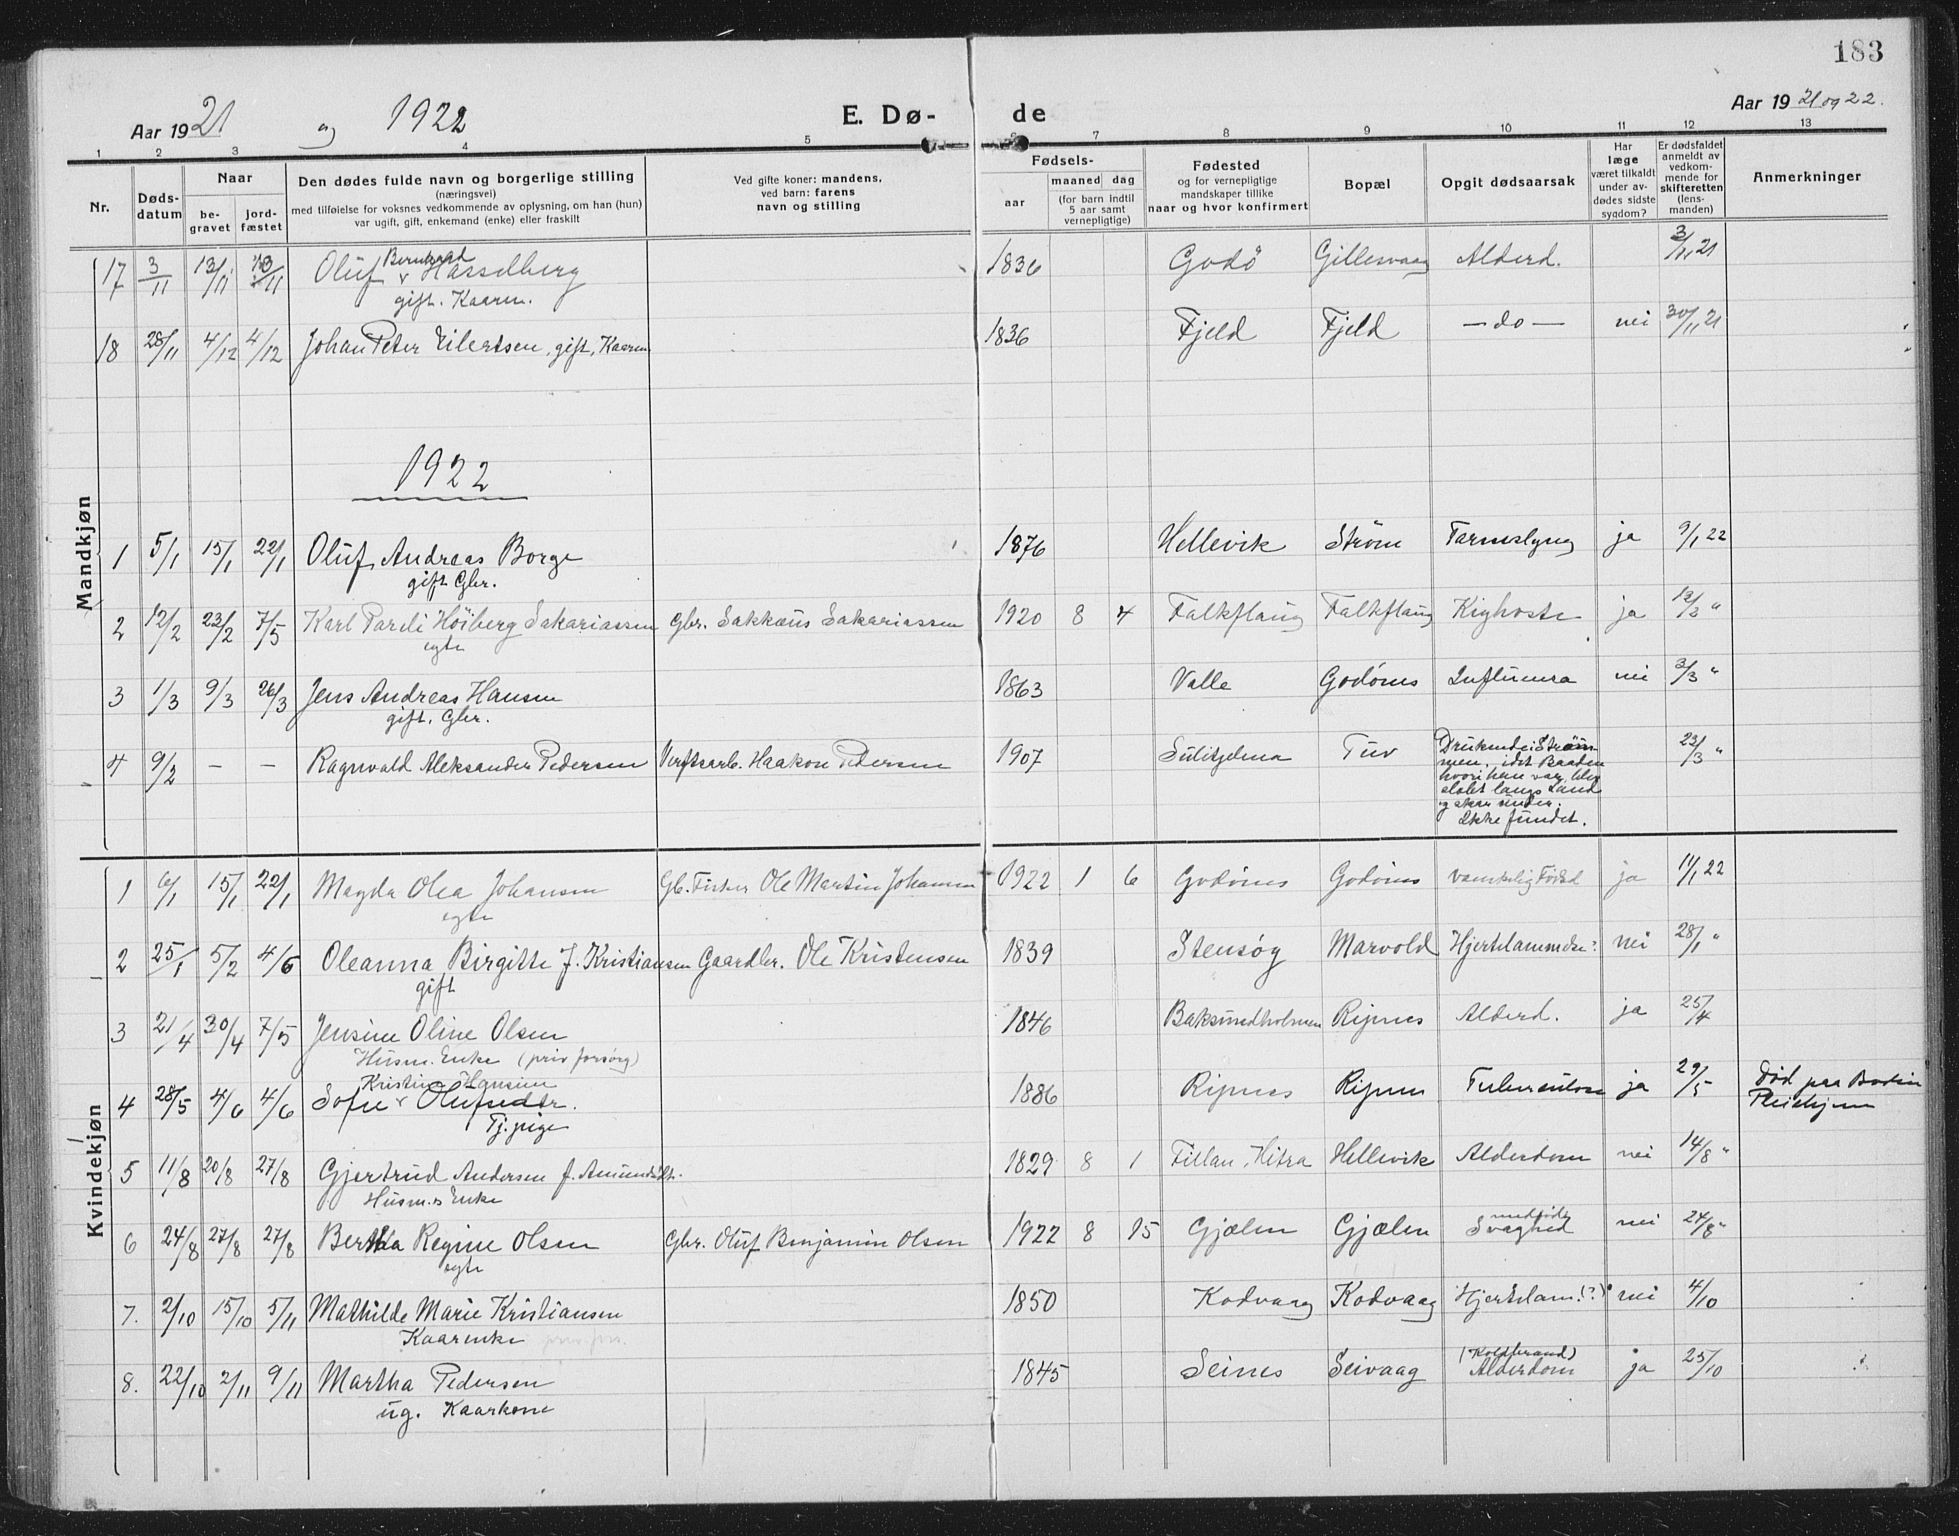 183
Aar 1921 og 1922
E. Dø- de
Aar 1921 og 22.
1 2 3 4 5 6 7 8 9 10 11 12 13
Nr.
Døds-
datum
Naar
be-
gravet
jord-
fæstet
Den dødes fulde navn og borgerlige stilling
(næringsvei)
med tilføielse for voksnes vedkommende av oplysning, om han (hun)
var ugift, gift, enkemand (enke) eller fraskilt
Ved gifte koner: mandens,
ved barn: farens
navn og stilling
Fødsels-
aar
maaned dag
(for barn indtil
5 aar samt
vernepligtige)
Fødested
og for vernepligtige
mandskaper tillike
naar og hvor konfirmert
Bopæl
Opgit dødsaarsak
Har
læge
været tilkaldt
under av-
dødes sidste
sygdom?
Er dødsfaldet
anmeldt av
vedkom-
mende for
skifteretten
(lens-
manden)
Anmerkninger
Mandkjøn
17 3/11 13/11 13/11 Oluf Bernhard Hasselberg 1836 Godø Gillesvaag Alderd. 3/11 21
gift. Kaarm.
18 28/11 4/12 4/12 Johan Peter Eilertsen, gift, Kaarm 1836 Fjeld Fjeld — do — nei 30/11 21
1922
1 5/1 15/1 22/1 Oluf Andreas Borge 1876 Hellevik Strøm Tarmslyng ja 9/1 22
gift Gbr.
2 12/2 23/2 7/5 Karl Pareli Høiberg Sakariassen Gbr. Sakkæus Sakariassen 1920 8 4 Falkflaug Falkflaug Kighoste ja 13/3 "
egte
3 1/3 9/3 26/3 Jens Andreas Hansen 1863 Valle Godønes Influensa nei 3/3 "
gift. Gbr.
4 9/2 – – Ragnvald Aleksander Pedersen Verftsarb. Haakon Pedersen 1907 Sulitjelma Tuv Druknede i Strøm-
men, idet Baaden 23/3 "
hvori han var, blev
slæbt langs Land
og skar under.
Ikke fundet.
Kvindekjøn
1 6/1 15/1 22/1 Magda Olea Johansen Gb. Fisker Ole Martin Johansen 1922 1 6 Godønes Godønes vanskelig Fødsel ja 11/1 22
egte
2 25/1 5/2 4/6 Oleanna Birgitte f. Kristiansen Gaardbr. Ole Kristensen 1839 Stensøg Marvold Hjertelammelse? nei 28/1 "
gift
3 21/4 30/4 7/5 Jensine Oline Olsen 1846 Baksundholmen Ripnes Alderd. ja 25/4
Husm. Enke (priv forsørg)
Kristine Hansine
4 28/5 4/6 4/6 Sofie Olufsedtr. 1886 Ripnes Ripnes Tuberculose ja 29/5 Død paa Bodin
Tj. pige Pleiehjem
5 11/8 20/8 27/8 Gjertrud Andersen f. Amundsdtr. 1829 8 1 Fillan, Hitra Hellevik Alderdom nei 14/8 "
Husm.s Enke
6 24/8 27/8 27/8 Bertha Regine Olsen Gbr. Oluf Benjamin Olsen 1922 8 15 Gjælen Gjælen medfødt Svaghed nei 24/8 "
egte
7. 2/10 15/10 5/11 Mathilde Marie Kristiansen 1850 Kodvaag Kodvaag Hjertelam. (?) nei 4/10
Kaarenke
8. 22/10 2/11 9/11 Martha Pedersen 1845 Seines Seivaag (Koldbrand) Alderdom ja 25/10
ug. Kaarkone